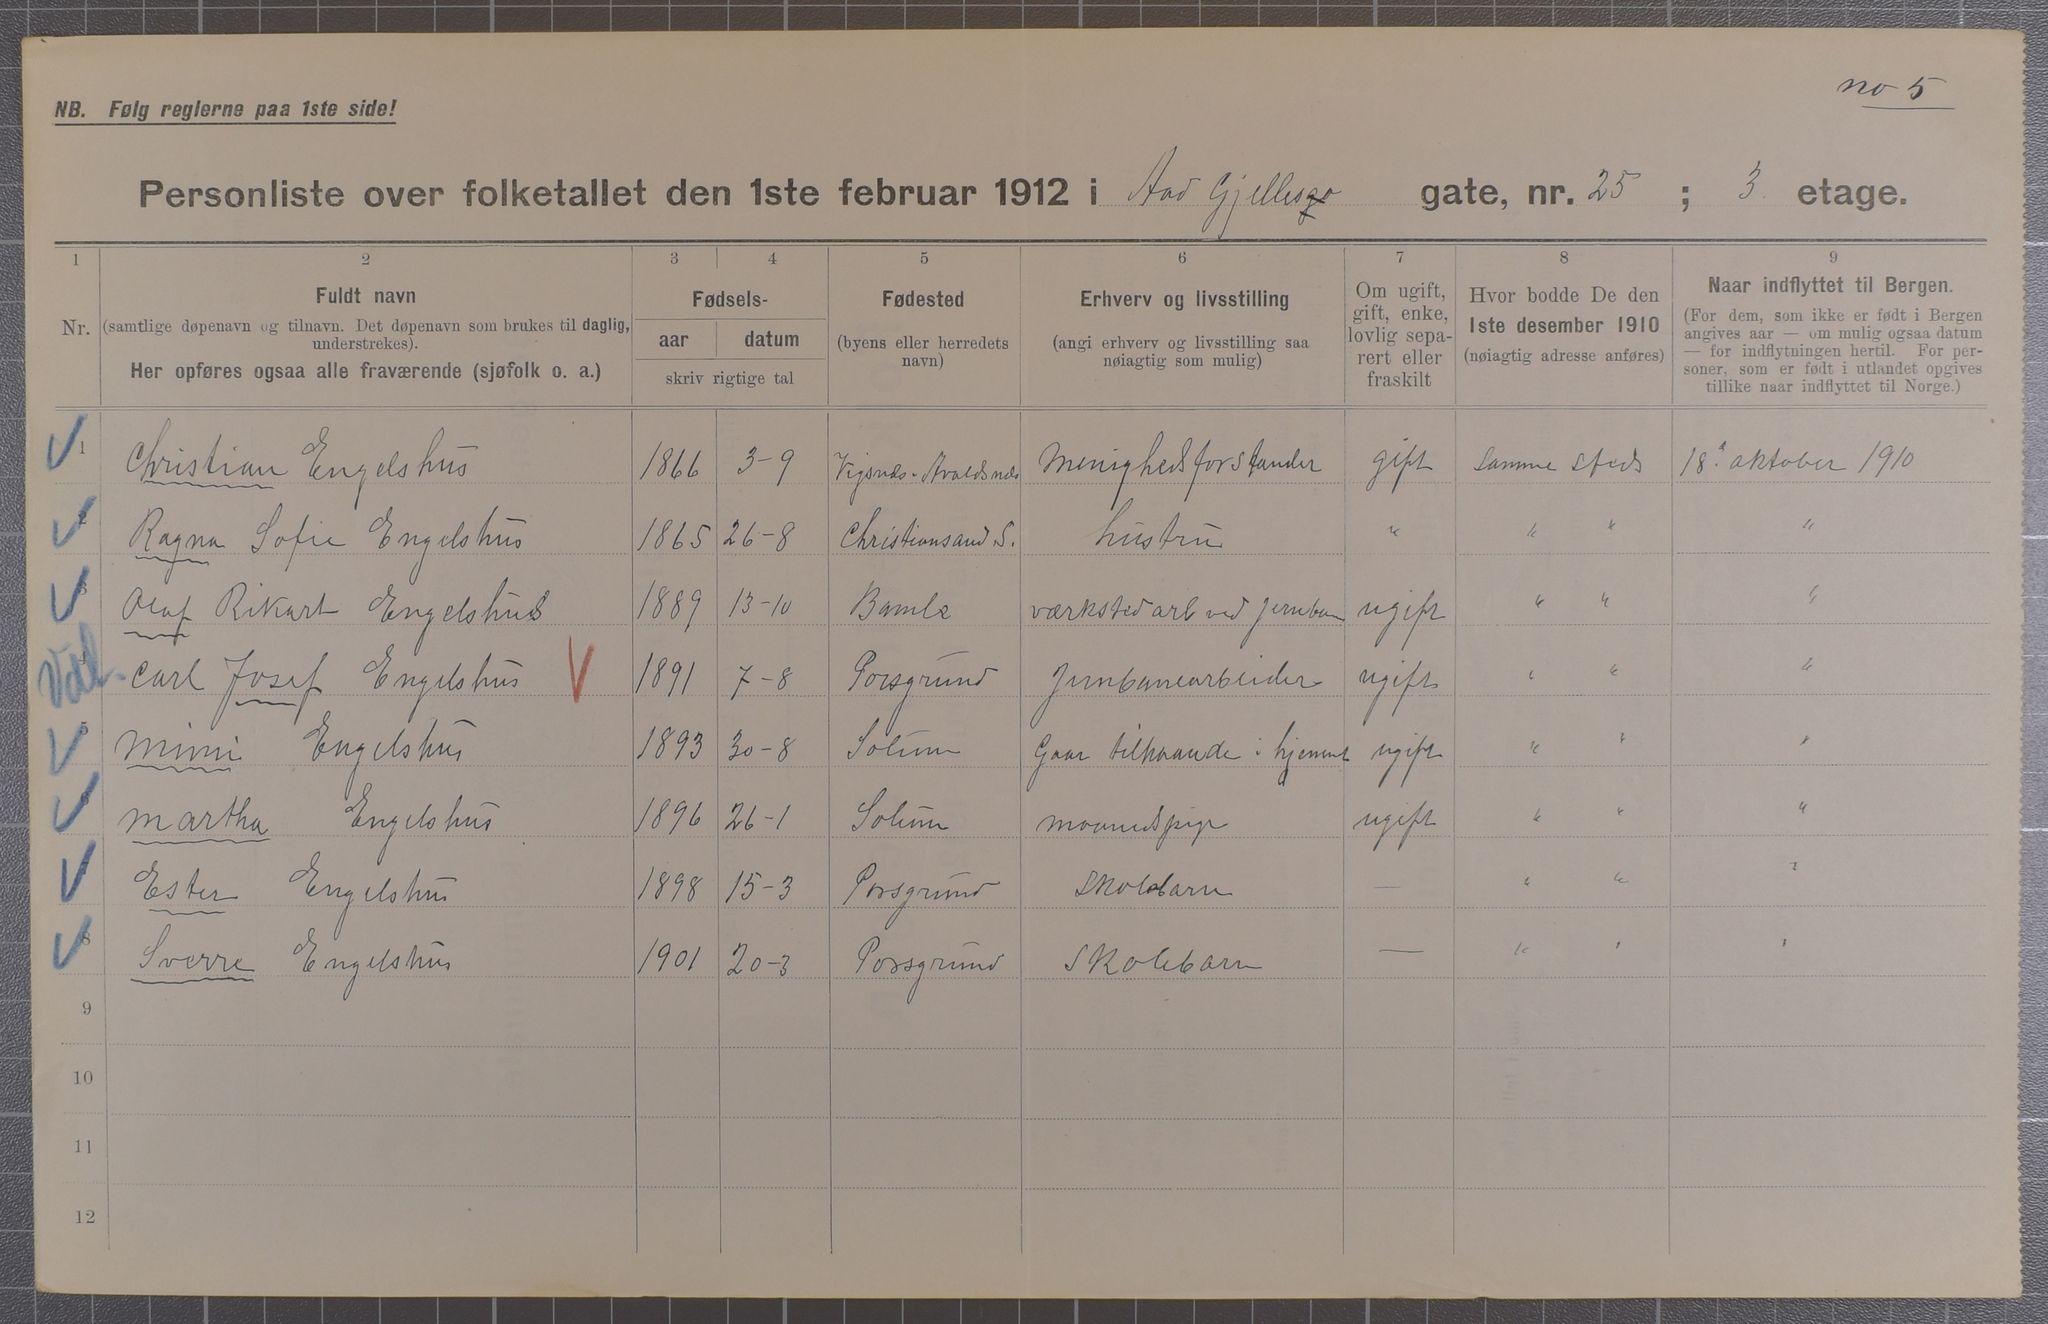 no 5
NB. Følg reglerne paa 1ste side!
Personliste over folketallet den 1ste februar 1912 i Aad Gjelles gate, nr. 25 ; 3. etage.
1 2 3 4 5 6 7 8 9
Nr.
Fuldt navn
(samtlige døpenavn og tilnavn. Det døpenavn som brukes til daglig, understrekes).
Her opføres ogsaa alle fraværende (sjøfolk o. a.)
Fødsels-
aar datum
skriv rigtige tal
Fødested
(byens eller herredets navn)
Erhverv og livsstilling
(angi erhverv og livsstilling saa nøiagtig som mulig)
Om ugift, gift, enke, lovlig separert eller fraskilt
Hvor bodde De den 1ste desember 1910
(nøiagtig adresse anføres)
Naar indflyttet til Bergen.
(For dem, som ikke er født i Bergen angives aar — om mulig ogsaa datum — for indflytningen hertil. For personer, som er født i utlandet opgives tillike naar indflyttet til Norge.)
1 Christian Engelshus 1866 3-9 Vigsnæs-Avaldsnæs Menighedsforstander gift samme steds 18. oktober 1910
2 Ragna Sofie Engelshus 1865 26-8 Christiansand S. hustru " " " "
3 Olaf Rikart Engelshus 1889 13-10 Bamle værkstedarb ved jernban ugift " " "
4 Carl Josef Engelshus V 1891 7-8 Porsgrund Jernbanearbeider ugift " " "
5 Mimi Engelshus 1893 30-8 Solum Gaar tilhaande i hjemmet ugift " " "
6 Martha Engelshus 1896 26-1 Solum maanedspige ugift " " "
7 Ester Engelshus 1898 15-3 Porsgrund Skolebarn — " " "
8 Sverre Engelshus 1901 20-3 Porsgrund Skolebarn — " " "
9
10
11
12